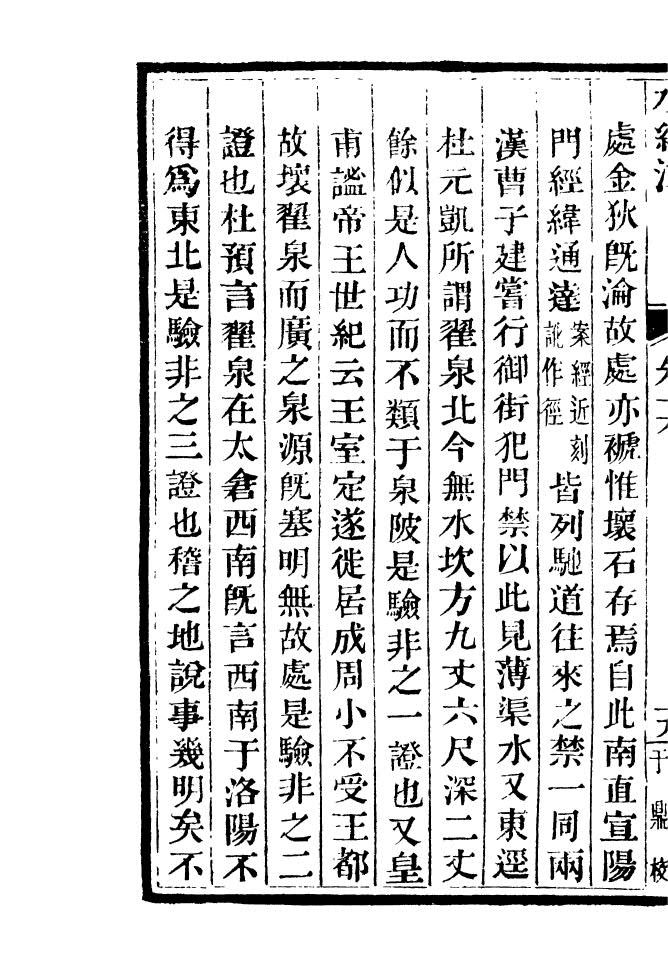 處金狄旣淪故處亦褫惟壞石存焉自此南直宣陽
門經緯通達案經近刻訛作徑皆列馳道往來之禁一同兩
漢曹子建嘗行御街犯門禁以此見薄渠水又東逕
杜元凱所謂翟泉北今無水坎方九丈六尺深二丈
餘似是人功而不類于泉陂是驗非之一證也又皇
甫謐帝王世紀云王室定遂徙居成周小不受王都
故壞翟泉而廣之泉源旣塞明無故處是驗非之二
證也杜預言翟泉在太倉西南旣言西南于洛陽不
得爲東北是驗非之三證也稽之地說事幾明矣不